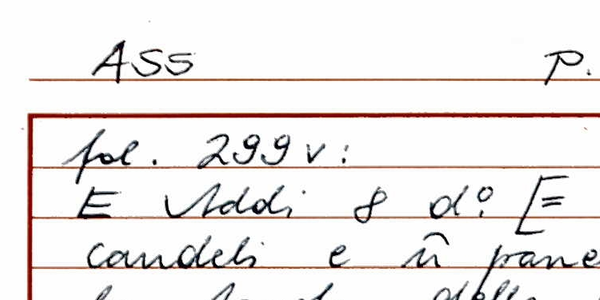 ASS P.
fol. 299v:
E Addi 8 d°. [=
candeli e û pane
delle